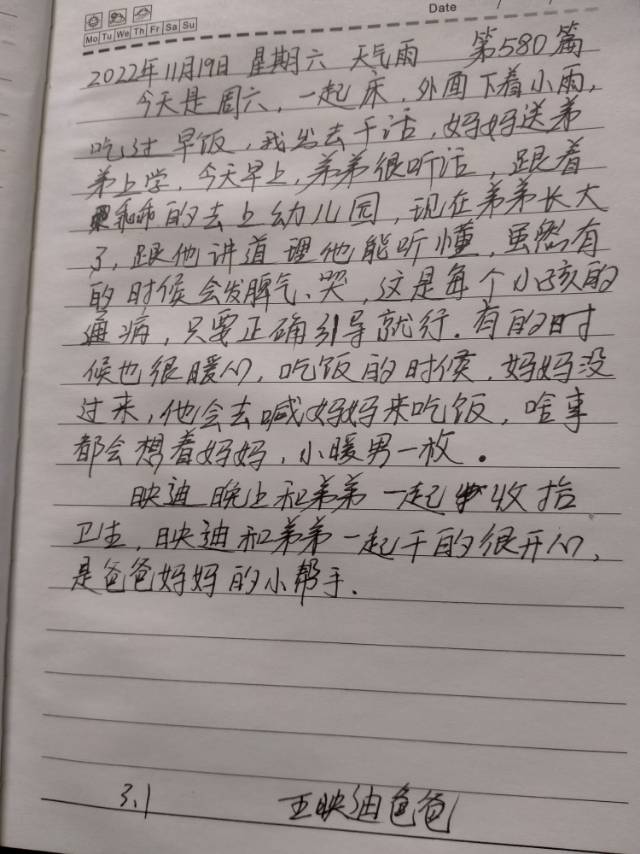 Date / /
Mo Tu We Th Fr Sa Su
2022年11月19日 星期六 天气雨 第580篇
今天是周六，一起床，外面下着小雨，
吃过早饭，我出去干活，妈妈送弟
弟上学，今天早上，弟弟很听话，跟着
乖乖的去上幼儿园，现在弟弟长大
了，跟他讲道理他能听懂，虽然有
的时候会发脾气、哭，这是每个小孩的
通病，只要正确引导就行．有的时
候也很暖心，吃饭的时候，妈妈没
过来，他会去喊妈妈来吃饭，啥事
都会想着妈妈，小暖男一枚。
映迪晚上和弟弟一起收拾
卫生，映迪和弟弟一起干的很开心，
是爸爸妈妈的小帮手．
3.1 王映迪爸爸